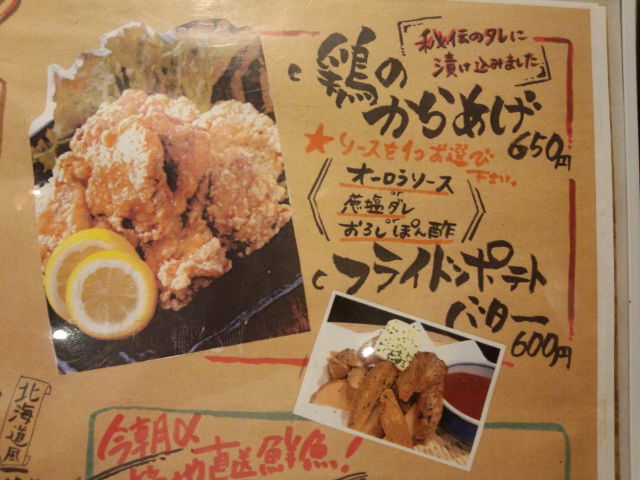 秘伝のタレに
漬け込みました
鶏の
からあげ
650円
★ソースを1つお選び
下さい。
オーロラソース
or
葱塩ダレ
or
おろしぽん酢
フライドポテト
バター
600円
北海道風
今朝の
直送鮮魚!